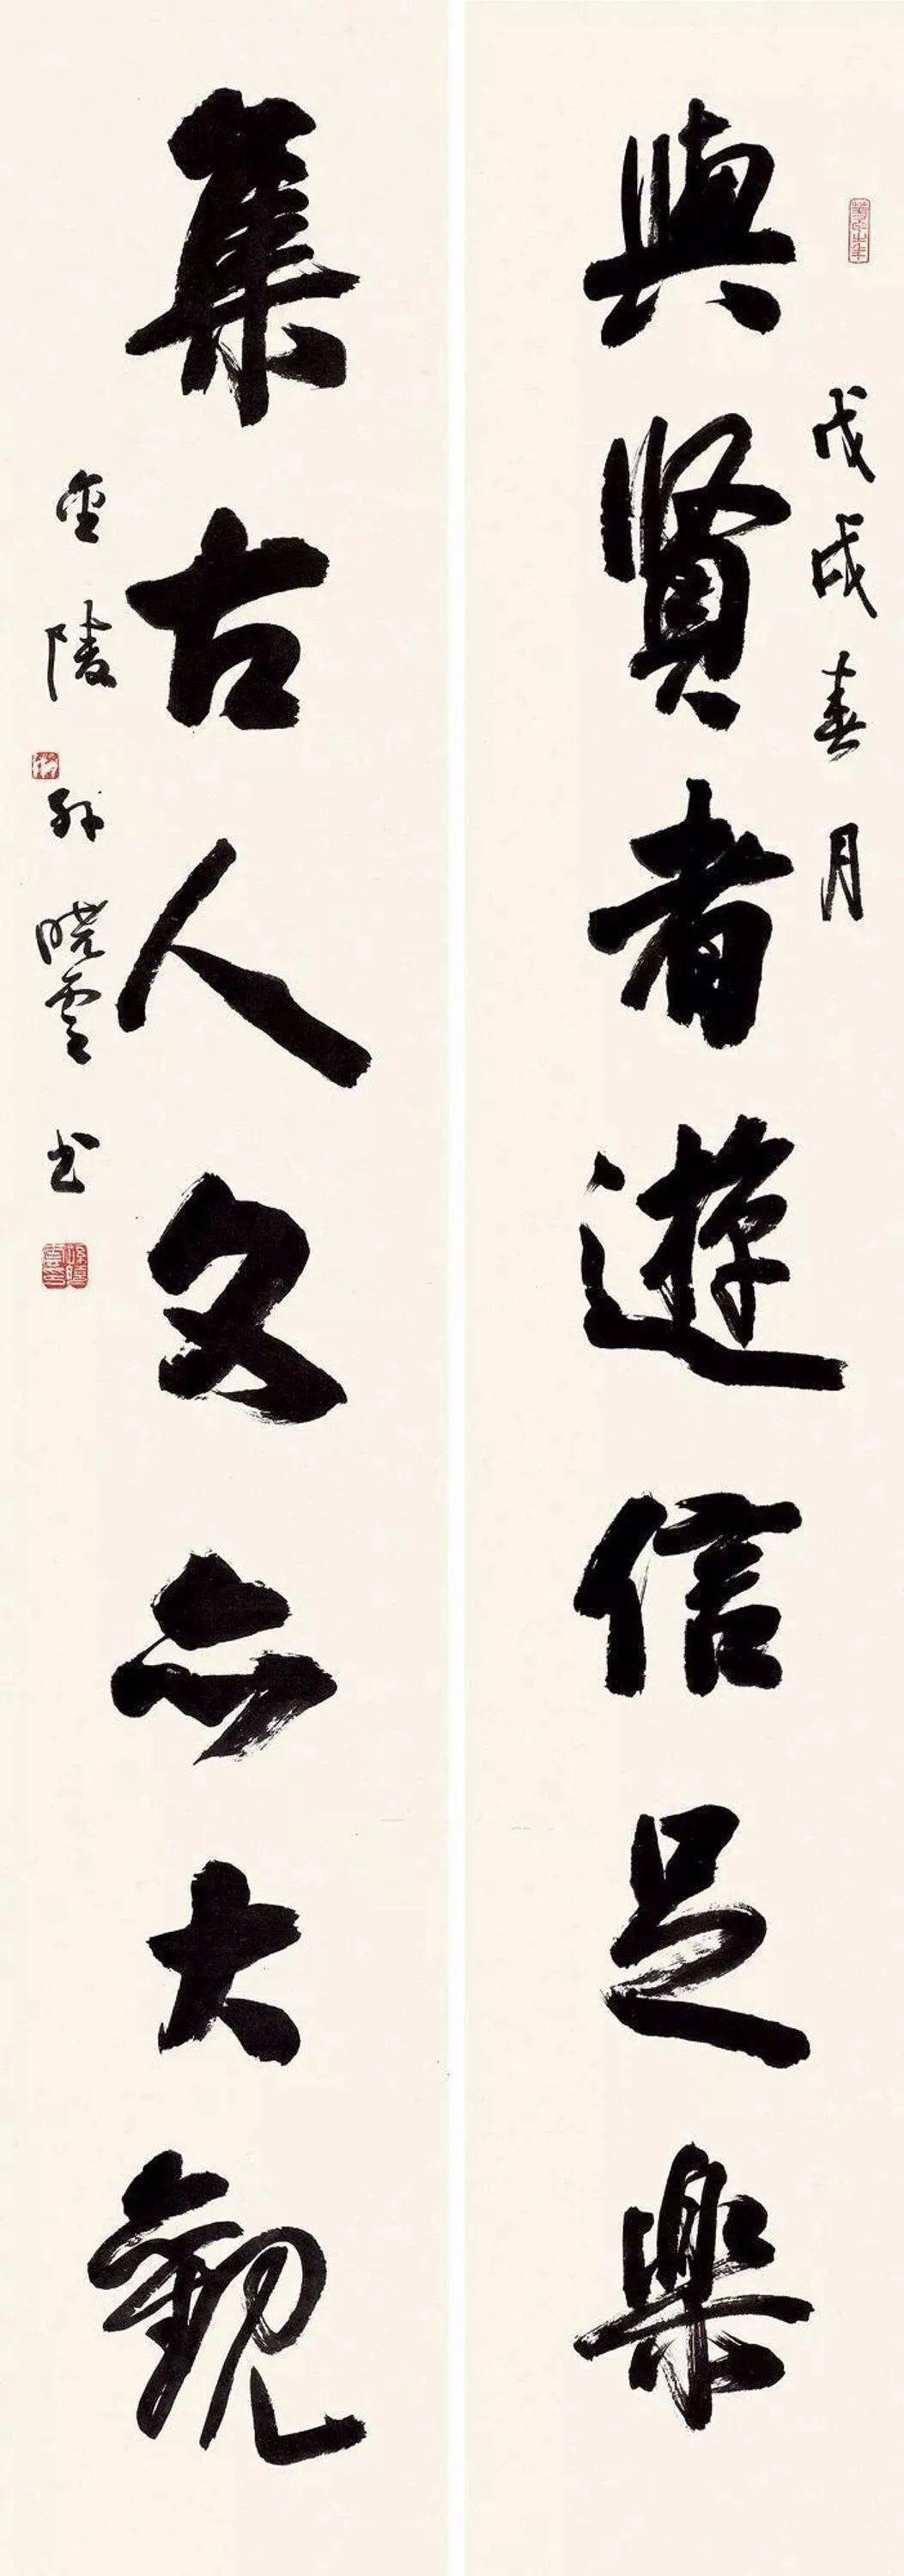 戊戌春月
與賢者遊信足樂
集古人文亦大觀
金陵孙晓雲书